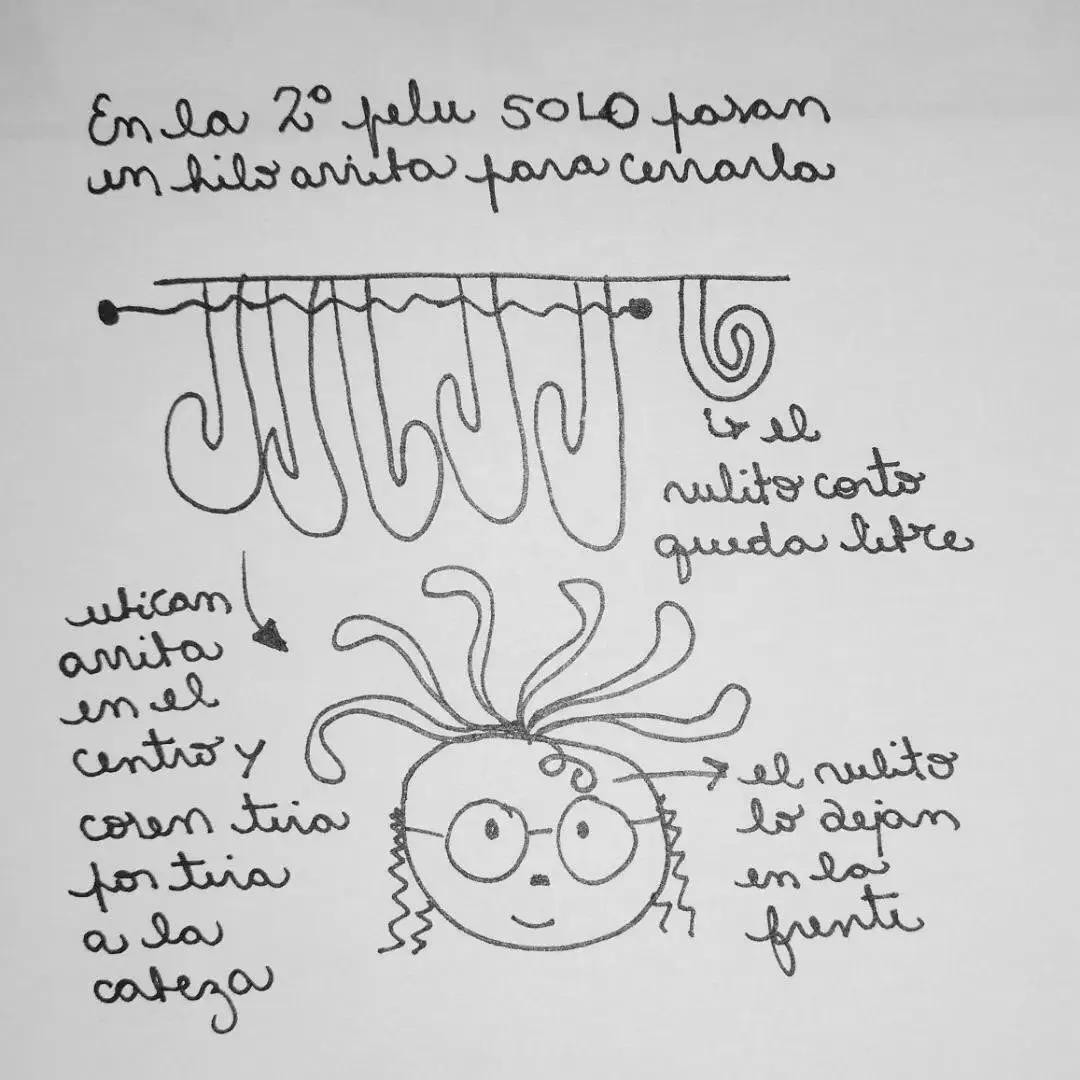 En la 2º pelu SOLO pasan
un hilo arriba para cerrarla
el
rulito corto
queda libre
ubican
arriba
en el
centro y
cosen tira
por tira
a la
cabeza
el rulito
lo dejan
en la
frente